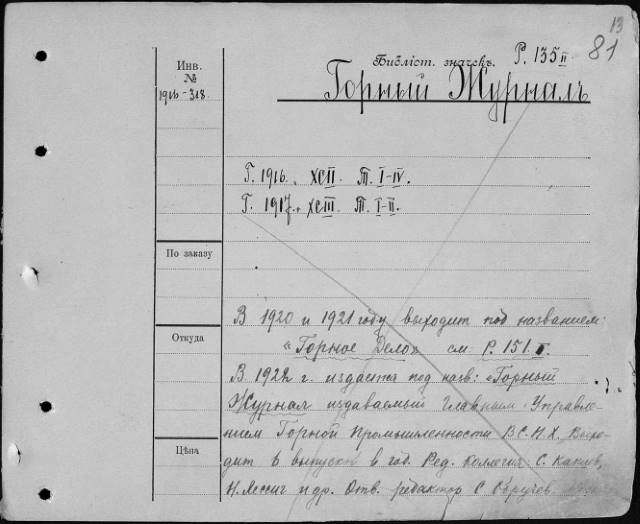 13
81
Инв.
№
1916-318
Библіот. значекъ. Р. 135 II
Горный Журналъ
Г. 1916. XCII. Т. I-IV.
Г. 1917. XCIII. Т. I-II.
По заказу
В 1920 и 1921 году выходит под названием:
Откуда
«Горное Дело» см. Р. 151. II.
В 1922 г. издается под назв: «Горный
Журнал издаваемый Главным Управле-
нием Горной Промышленности ВСНХ. Выхо-
Цѣна
дит 6 выпусков в год. Ред. Коллегия: С.
Н. Лессиг и др. Отв. редактор С. Обручев.